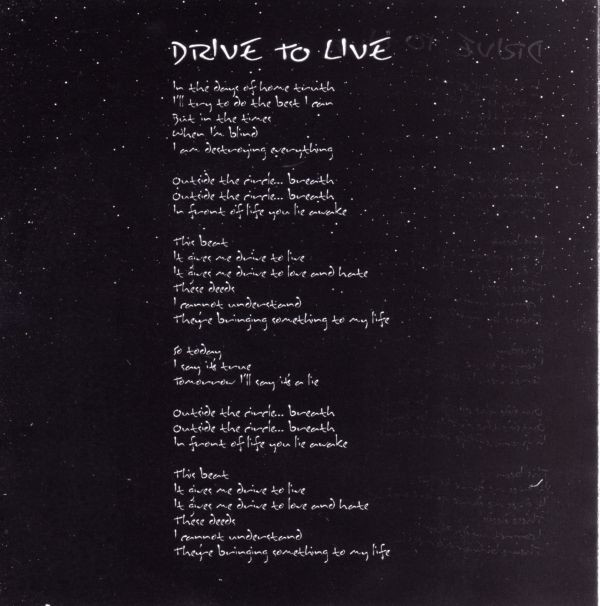 DRIVE TO LIVE
In the days of home truth
I'll try to do the best I can
But in the times
When I'm blind
I am destroying everything
Outside the circle... breath
Outside the circle... breath
In front of life you lie awake
This beat
It gives me drive to live
It gives me drive to love and hate
These deeds
I cannot understand
They're bringing something to my life
So today
I say it's true
Tomorrow I'll say it's a lie
Outside the circle... breath
Outside the circle... breath
In front of life you lie awake
This beat
It gives me drive to live
It gives me drive to love and hate
These deeds
I cannot understand
They're bringing something to my life